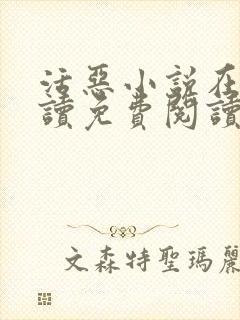 活惡小說在
讀免費閱讀
文森特聖瑪麗